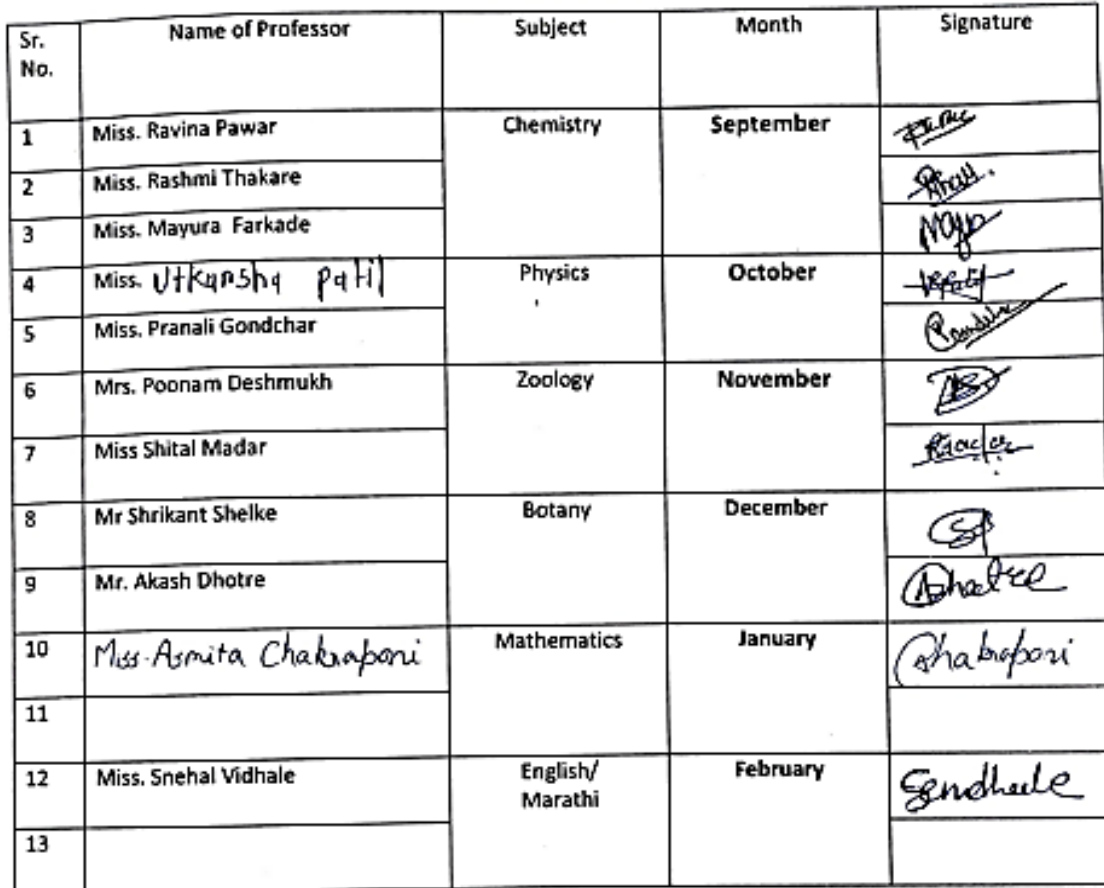 Sr. No. Name of Professor Subject Month Signature
1 Miss. Ravina Pawar Chemistry September
2 Miss. Rashmi Thakare
3 Miss. Mayura Farkade
4 Miss. Utkarsha Patil Physics October
5 Miss. Pranali Gondchar
6 Mrs. Poonam Deshmukh Zoology November
7 Miss Shital Madar
8 Mr Shrikant Shelke Botany December
9 Mr. Akash Dhotre
10 Miss. Asmita Chakraponi Mathematics January Chakraponi
11
12 Miss. Snehal Vidhale English/ Marathi February
13